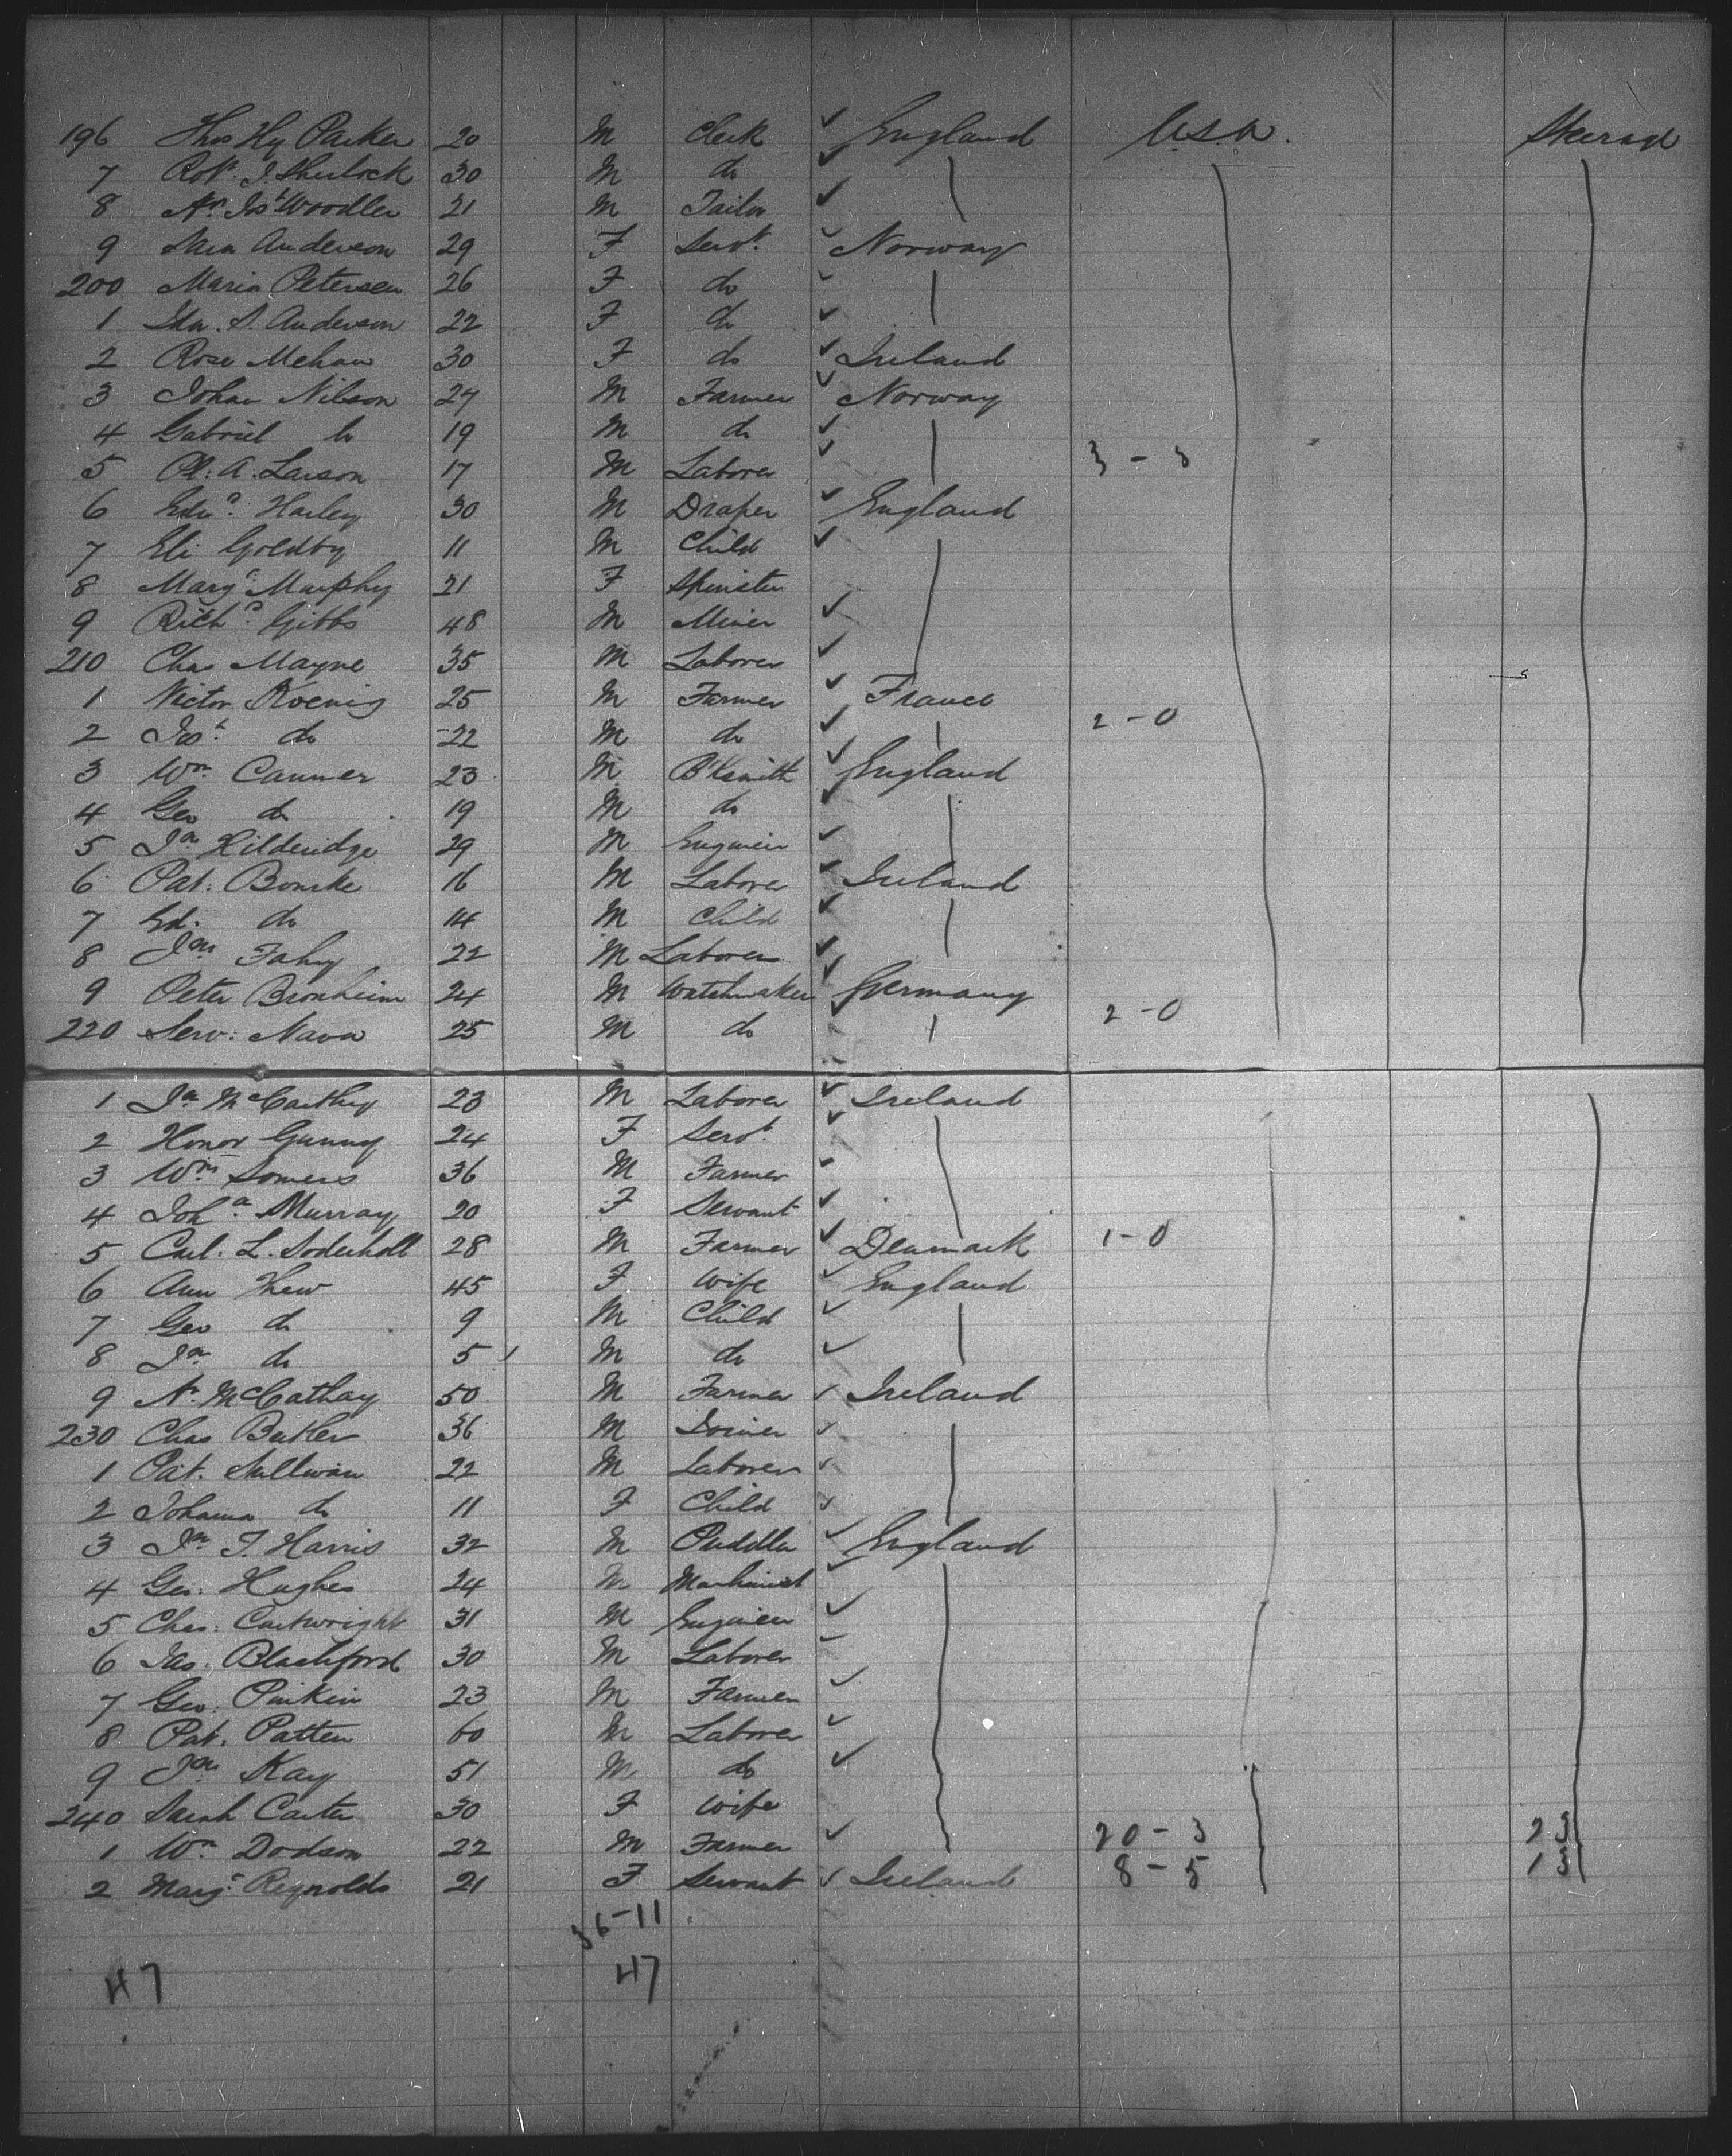 196 Thos Hy Parker 20 M Clerk ✓ England U.S.A. Steerage
7 Robt. J. Sherlock 30 M do ✓
8 Wm Jos Woodler 21 M Tailor ✓
9 Sara Anderson 29 F Servt. ✓ Norway
200 Maria Petersen 26 F do ✓
1 Ida. S. Anderson 22 F do ✓
2 Rose Mehan 30 F do ✓ Ireland
3 Johan Nilson 24 M Farmer ✓ Norway
4 Gabriel do 19 M do ✓
5 A. Larson 17 M Laborer ✓ 3-3
6 Edwd. Harley 30 M Draper ✓ England
7 Eli Goldby 11 M Child ✓
8 Margt. Murphy 21 F Spinster
9 Richd. Gibbs 48 M Miner ✓
210 Chas Mayne 35 M Laborer ✓
1 Victor Koenig 25 M Farmer ✓ France
2 Jos. do 22 M do ✓ 2-0
3 Wm. Canner 23 M B'lsmith ✓ England
4 Geo do 19 M do ✓
5 Jn Hilderidge 29 M Engineer ✓
6 Pat. Bourke 16 M Laborer ✓ Ireland
7 Ed. do 14 M Child ✓
8 Jas Fahy 22 M Laborer ✓
9 Peter Bronheim 24 M Watchmaker ✓ Germany
220 Serv. Nava 25 M do 2-0
1 Jn McCarthy 23 M Laborer ✓ Ireland
2 Honor Gunny 24 F Servt. ✓
3 Wm. Somers 36 M Farmer ✓
4 Joha. Murray 20 F Servant ✓
5 Carl. L. Soderholt 28 M Farmer ✓ Denmark 1-0
6 Ann Thew 45 F Wife ✓ England
7 Geo do 9 M Child ✓
8 Jn do 5 M do ✓
9 McCathay 50 M Farmer ✓ Ireland
230 Chas Butler 36 M Joiner ✓
1 Pat. Sullivan 22 M Laborer ✓
2 Johanna do 11 F Child ✓
3 Jn. T. Harris 32 M Puddler ✓ England
4 Geo. Hughes 24 M Machinist ✓
5 Chas. Cartwright 31 M Engineer ✓
6 Jas. Blachford 30 M Laborer ✓
7 Geo. Pinkin 23 M Farmer ✓
8 Pat. Patten 60 M Laborer ✓
9 Jas Kay 51 M do ✓
240 Sarah Carter 30 F Wife
1 Wm Dodson 22 M Farmer ✓ 20-3 23
2 Margt. Reynolds 21 F Servant ✓ Ireland 8-5 13
36-11
47 47